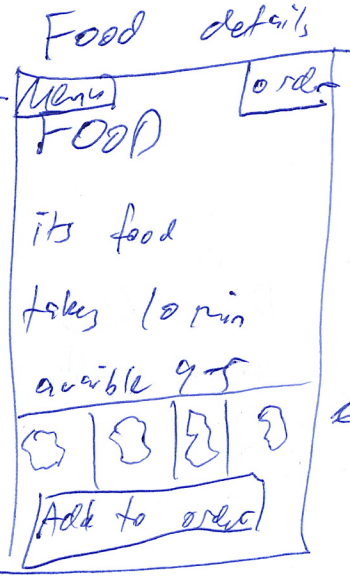 Food details
Menu order
FOOD
its food
takes 10 min
avaible 9-5
Add to order